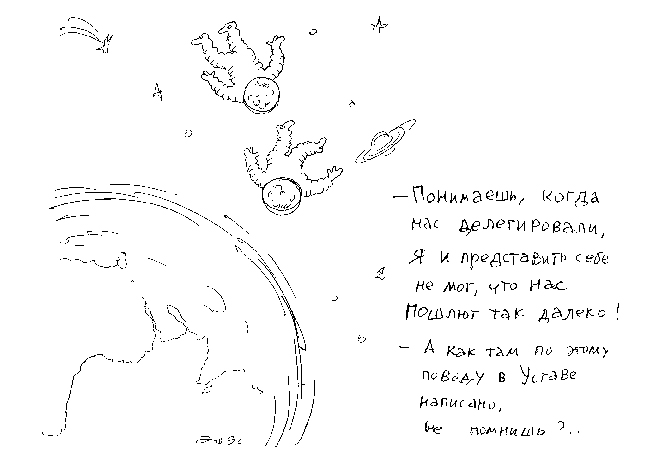 — Понимаешь, когда
нас делегировали,
Я и представить себе
не мог, что нас
пошлют так далеко!
— А как там по этому
поводу в Уставе
написано,
не помнишь?..